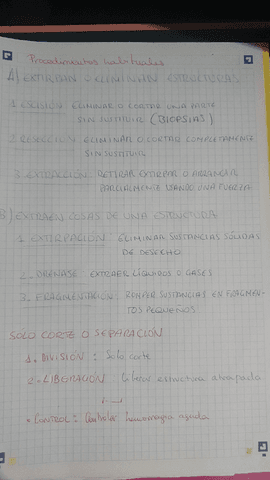 Procedimientos
A) EXTIRPAN O ELIMINAN ESTRUCTURAS
1. ESCISIÓN ELIMINAR O CORTAR UNA PARTE
SIN SUSTITUIR (BIOPSIAS)
2. RESECCIÓN ELIMINAR O CORTAR COMPLETAMENTE
SIN SUSTITUIR
3. EXTRACCIÓN: RETIRAR EXTIRPAR O ARRANCAR
PARCIALMENTE USANDO UNA FUERZA
B) EXTRAEN COSAS DE UNA ESTRUCTURA
1. EXTIRPACIÓN: ELIMINAR SUSTANCIAS SÓLIDAS
DE DESECHO
2.- DRENAJE: EXTRAER LÍQUIDOS O GASES
3. FRAGMENTACIÓN: ROMPER SUSTANCIAS EN FRAGMEN-
TOS PEQUEÑOS
SOLO CORTE O SEPARACIÓN
1. DIVISIÓN: Solo corte
2-LIBERACIÓN estructura atrapada
• CONTROL: Controlar hemorragia aguda